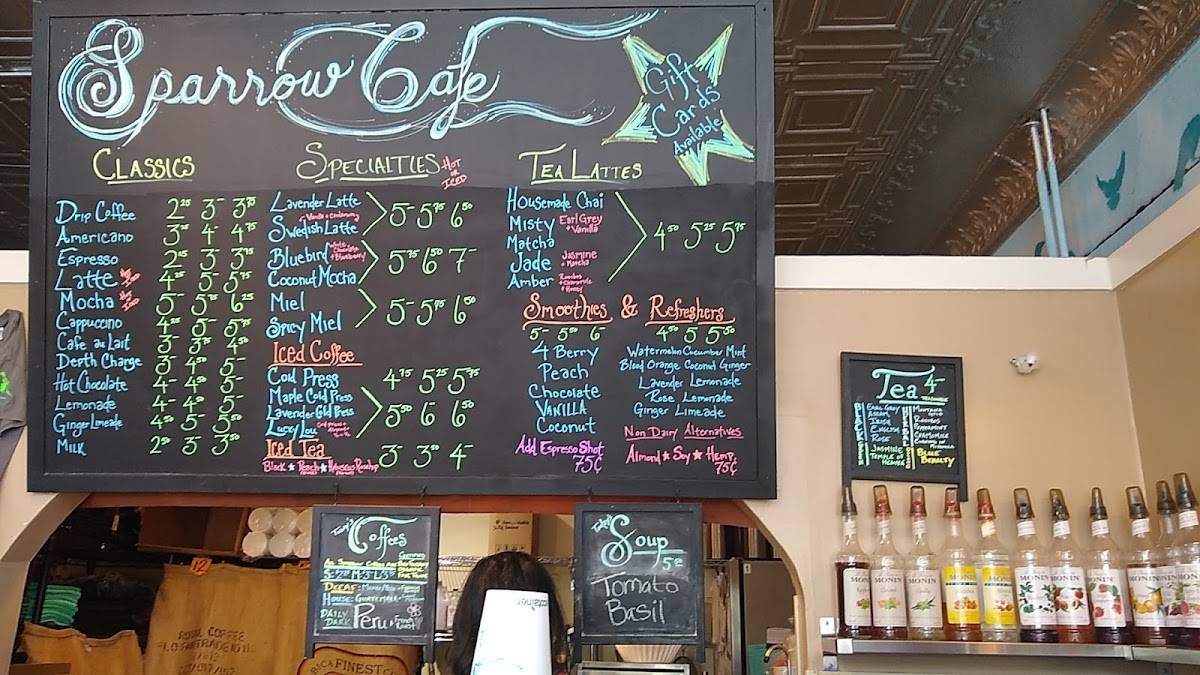 Sparrow Cafe
Gift
Cards
Available
CLASSICS
Drip Coffee 2²⁵ 3⁻ 3⁷⁵
Americano 3²⁵ 4⁻ 4⁷⁵
Espresso 2²⁵ 3⁻ 3⁷⁵
Latte 4²⁵ 5⁻ 5⁷⁵
Mocha 5⁻ 5⁷⁵ 6²⁵
Cappuccino 4²⁵ 5⁻ 5⁷⁵
Cafe au Lait 3⁻ 3⁷⁵ 4⁵⁰
Depth Charge 3⁻ 4⁵⁰ 5⁻
Hot Chocolate 4⁻ 4⁵⁰ 5⁻
Lemonade 4⁻ 4⁵⁰ 5⁻
Ginger Limeade 4⁵⁰ 5⁻ 5⁵⁰
Milk 2⁵⁰ 3⁻ 3⁵⁰
SPECIALTIES HOT OR ICED
Lavender Latte
Swedish Latte
5⁻ 5⁷⁵ 6⁵⁰
Bluebird
Coconut Mocha
5⁷⁵ 6⁵⁰ 7⁻
Miel
Spicy Miel
5⁻ 5⁷⁵ 6⁵⁰
Iced Coffee
Cold Press 4⁷⁵ 5²⁵ 5⁷⁵
Maple Cold Press
Lavender Cold Press
Lucky Lou
5⁵⁰ 6⁻ 6⁵⁰
Iced Tea 3⁻ 3⁵⁰ 4⁻
Black ★ Peach ★ Hibiscus Rosehip
TEA LATTES
Housemade Chai
Misty Earl Grey + Vanilla
Matcha
Jade Jasmine + Matcha
Amber Rooibos + Chamomile + Honey
4⁵⁰ 5²⁵ 5⁷⁵
Smoothies & Refreshers
5⁻ 5⁵⁰ 6⁻
4 Berry
Peach
Chocolate
VANILLA
Coconut
Add Espresso Shot
75¢
4⁵⁰ 5 5⁵⁰
Watermelon Cucumber Mint
Blood Orange Coconut Ginger
Lavender Lemonade
Rose Lemonade
Ginger Limeade
Non Dairy Alternatives
Almond ★ Soy ★ Hemp
75¢
Tea 4⁻
BLACK
EARL GREY
ASSAM
IRISH
ENGLISH
ROSE
JASMINE
TEMPLE OF HEAVEN
HERBAL
ROOIBOS
PEPPERMINT
CHAMOMILE
BLUE BEAUTY
Today's
Coffees
DECAF:
HOUSE: GUATEMALA
DAILY DARK Peru French Roast
Today's
Soup 5⁵⁰
Tomato
Basil
ROYAL COFFEE
FLO FAIRTRADE ID
12
MONIN
MONIN
MONIN
MONIN
MONIN
MONIN
MONIN
MONIN
MONIN
MONIN
MONIN